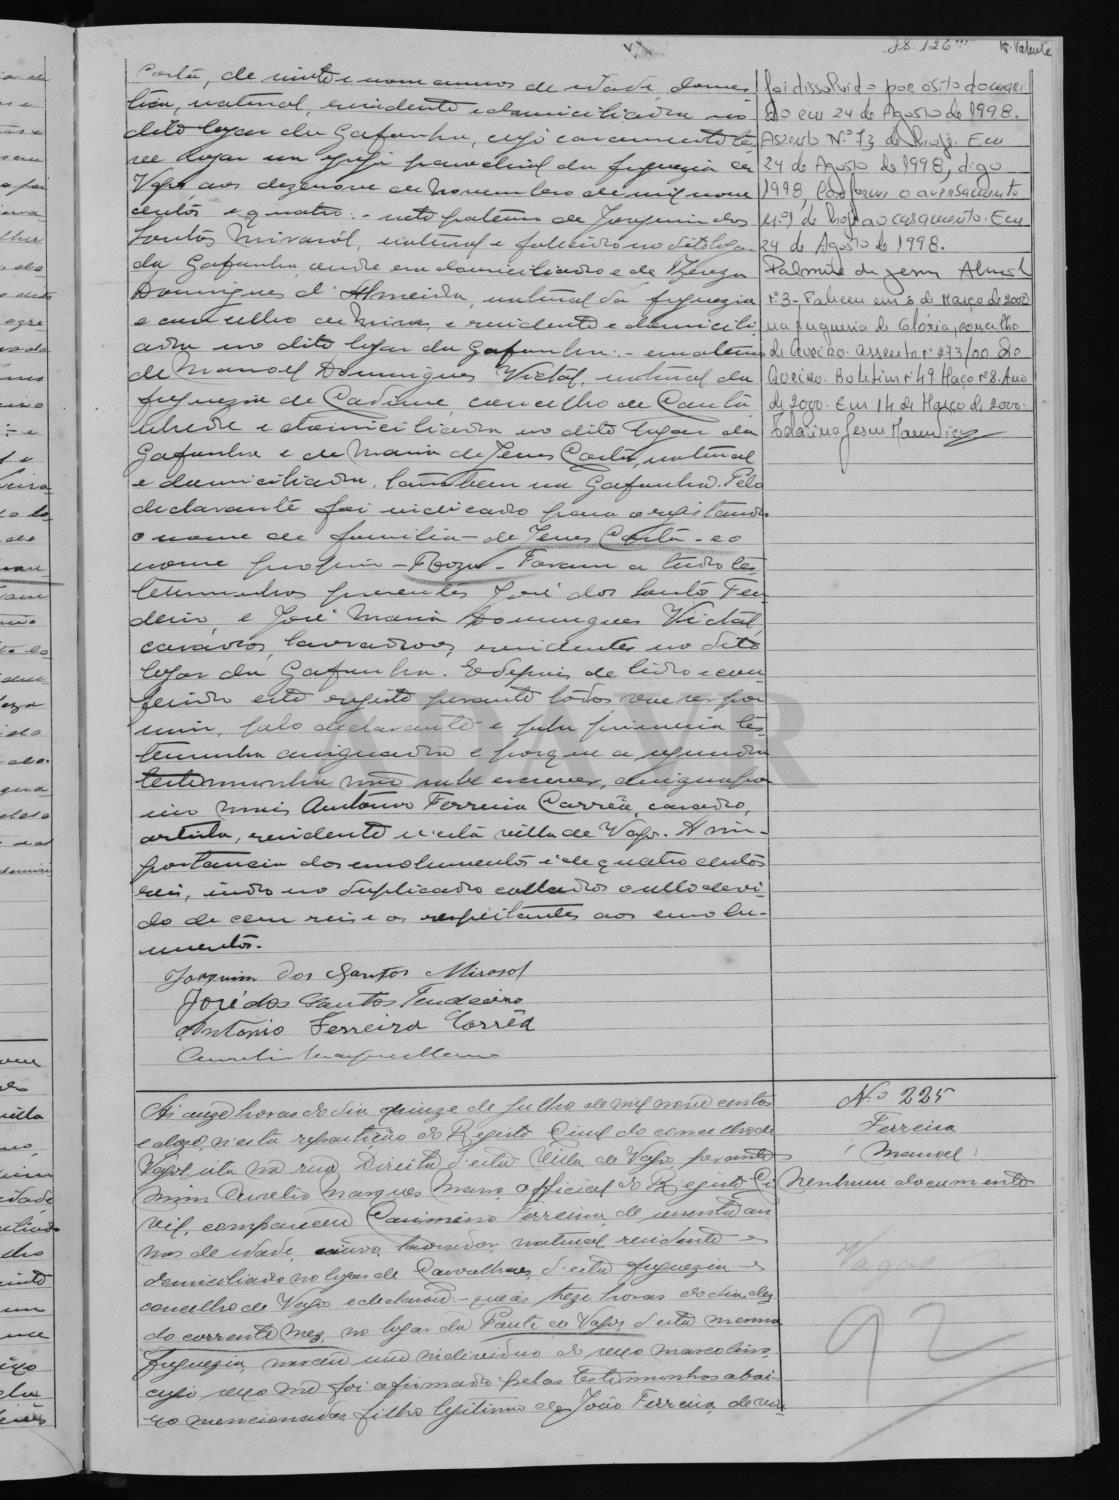 fs. 126
Costa, de vinte e nove annos de idade, domes-
tica, natural, residente e domiciliada no
dito logar da Gafanha, cujo casamento te-
ve logar na egreja parochial da freguezia de
Vagos aos dezenove de Novembro de mil nove
centos e quatro:- neto paterno de Joaquim dos
Santos Mirasol, natural e fallecido no dito logar
da Gafanha, onde era domiciliado e de Thereza
Domingues d'Almeida, natural da freguezia
e concelho de Mira, e residente e domicili-
ada no dito logar da Gafanha:- e materno
de Manoel Domingues Victal, natural da
freguezia de Cadima, concelho de Canta-
nhede e domiciliado no dito logar da
Gafanha e de Maria de Jesus Costa, natural
e domiciliada, tambem na Gafanha. Pelo
declarante foi indicado para o registando
o nome de familia - de Jesus Costa - e o
nome proprio - Roza - Foram a tudo tes-
temunhas presentes José dos Santos Ten-
deiro, e José Maria Domingues Victal,
casados, lavradores, residentes no dito
logar da Gafanha. E depois de lido e con-
ferido este registo perante todos, vae ser por
mim, pelo declarante e pela primeira tes-
temunha assignado e porque a segunda
testemunha não sabe escrever, assigna por
elle Antonio Ferreira Corrêa, casado,
artista, residente n'esta villa de Vagos. A im-
portancia dos emolumentos é de quatro centos
reis, indo no duplicado collados o sello devi-
do de cem reis e os respeitantes aos emolu-
mentos.
Joaquim dos Santos Mirasol
José dos Santos Tendeiro
Antonio Ferreira Corrêa
foi dissolvido por obito do mari
do em 24 de Agosto de 1998.
Assento N.º 73 de Em
24 de Agosto de 1998, digo
1998, Conforme o averbamento
n.º 1 de ao casamento. Em
24 de Agosto de 1998.
nº 3 - Faleceu em 8 de Março de 2000
na freguesia de Glória, concelho
de Aveiro. Assento nº 273/00 de
Aveiro. Boletim nº 49 Maço nº 8. Ano
de 2000. Em 14 de Março de 2000.
Ás onze horas do dia quinze de Julho de mil nove centos
e doze, n'esta repartição do Registo Civil do concelho de
Vagos, sita na rua Direita d'esta Villa de Vagos, perante
mim Aurelio Marques Mano, official do Registo Ci-
vil, compareceu Ferreira, de sessenta an-
nos de idade, viuvo, lavrador, natural, residente e
domiciliado no logar de Carvalhaes, d'esta freguezia e
concelho de Vagos e declarou:- que ás treze horas do dia dez
do corrente mez, no logar da Fonte de Vagos, d'esta mesma
freguezia, nasceu um individuo do sexo masculino,
cujo sexo me foi afirmado pelas testemunhas abai-
xo mencionadas, filho legitimo de João Ferreira, de
N.º 225
Ferreira
(Manoel)
Nenhum documento
Vagos
92